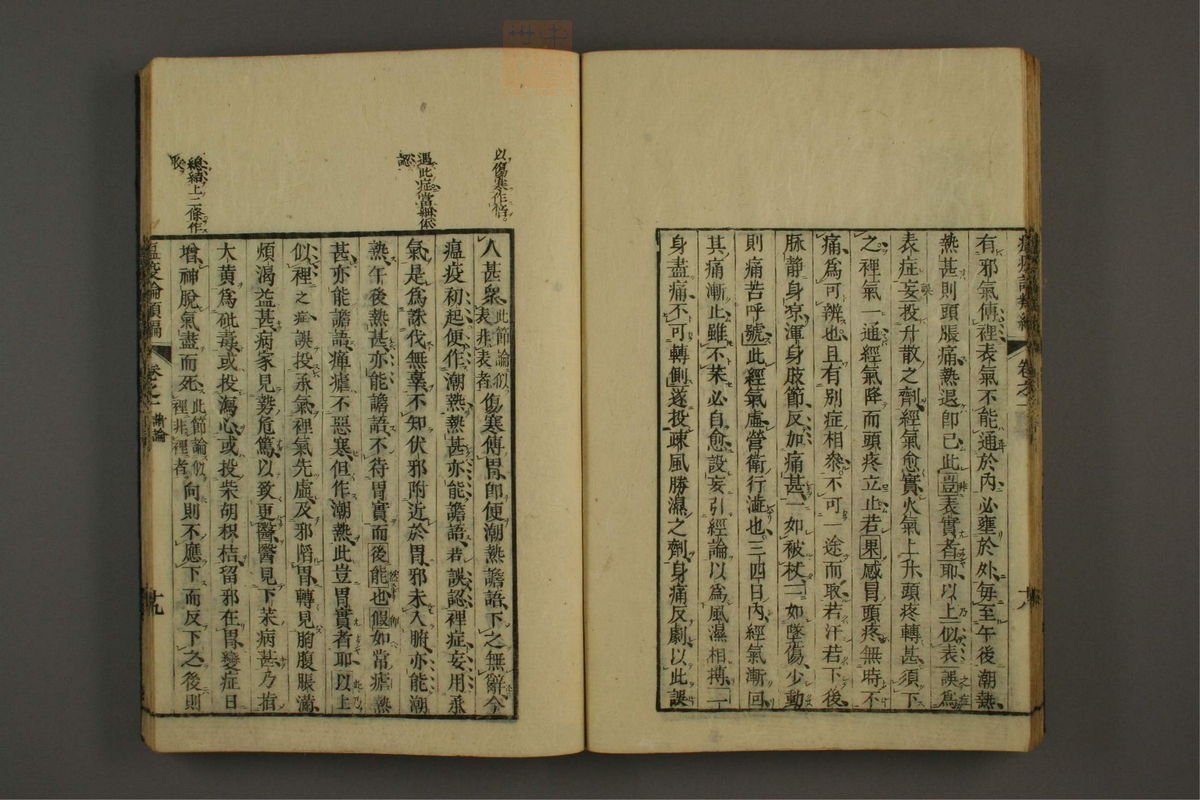 有邪氣傳裡表氣不能通於內必壅於外每至午後潮熱
熱甚則頭脹痛熱退卽已此豈表實者耶以上似表誤爲
表症妄投升散之劑經氣愈實火氣上升頭疼轉甚須下
之裡氣一通經氣降而頭疼立止若果感冒頭疼無時不
痛爲可辨也且有別症相叅不可一途而取若汗若下後
脉静身凉渾身肢節反加痛甚一如被杖一如墜傷少動
則痛苦呼號此經氣虛營衛行澁也三四日內經氣漸回
其痛漸止雖不藥必自愈設妄引經論以爲風濕相搏一
身盡痛不可轉側遂投疎風勝濕之劑身痛反劇以此誤
卷之一
十八
以傷寒作倍
遇此症當細依
認
總結上二條作
眼
人甚衆此節論似表非表者傷寒傳胃卽便潮熱譫語下之無辭今
瘟疫初起便作潮熱熱甚亦能譫語若誤認裡症妄用承
氣是爲誅伐無辜不知伏邪附近於胃邪未入腑亦能潮
熱午後熱甚亦能譫語不待胃實而後能也假如常瘧熱
甚亦能譫語癉瘧不惡寒但作潮熱此豈胃實者耶以上
似裡之症誤投承氣裡氣先虛及邪陷胃轉見胸腹脹滿
煩渴益甚病家見勢危篤以致更醫醫見下藥病甚乃指
大黃爲砒毒或投瀉心或投柴胡枳桔留邪在胃變症日
增神脫氣盡而死此節論似裡非裡者向則不應下而反下之後則
瘟疫論類編
卷之一
諸論
十九